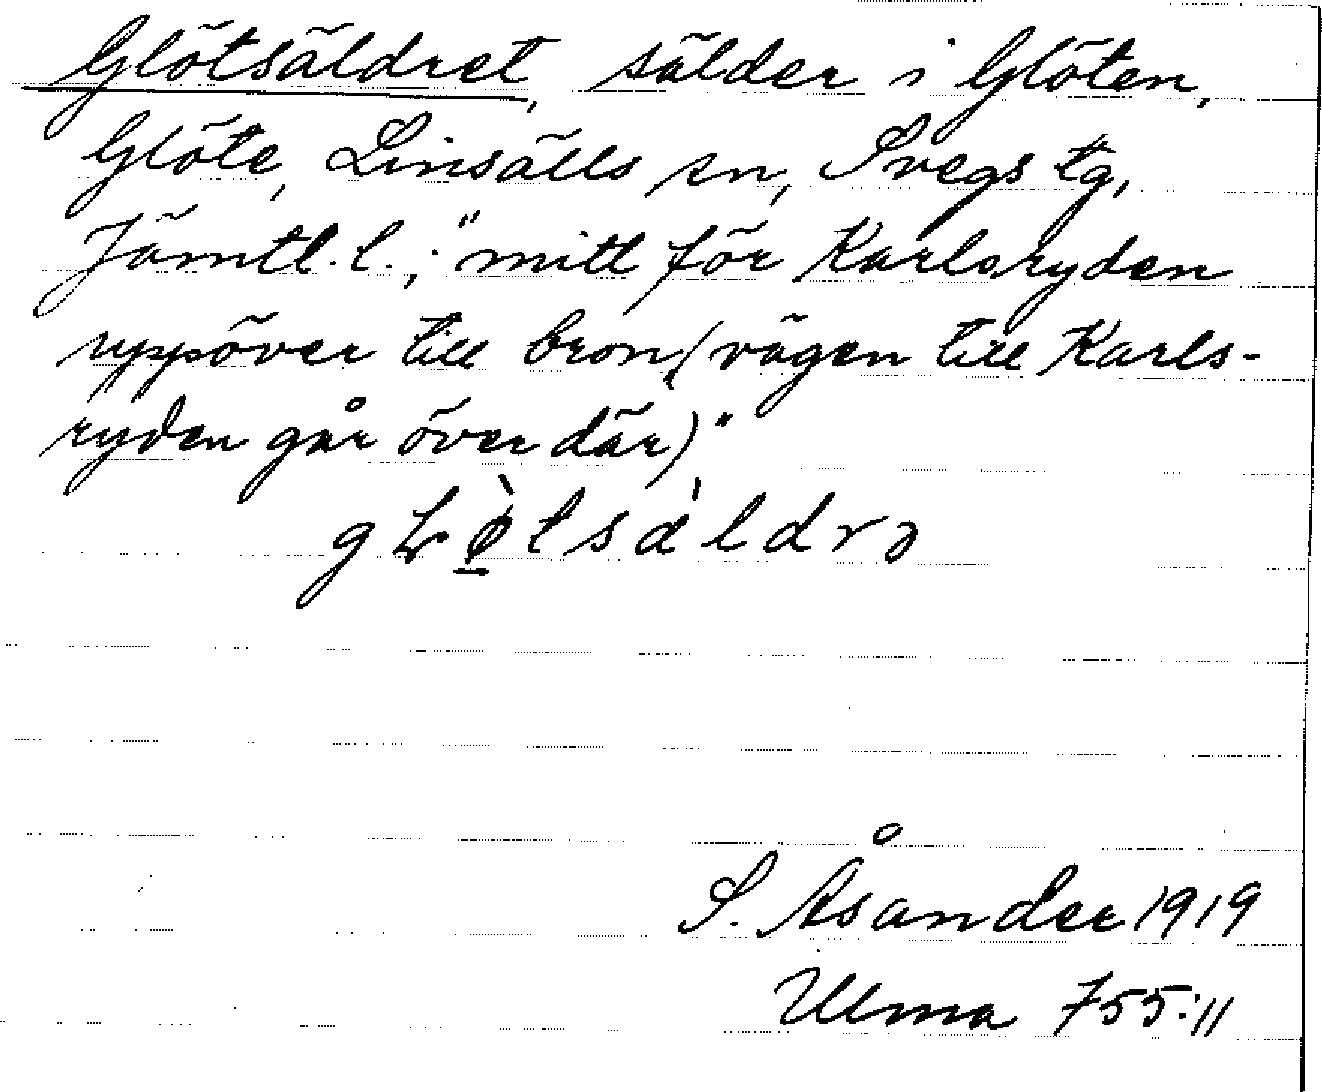 Glötsäldret, sälder i Glöten,
Glöte, Linsälls sn, Svegs tg,
Jämtl. l.; "mitt för Karlsryden
uppöver till bron (vägen till Karls-
ryden går över där)"
gʟø̠̀tsàldrə
S. Åsander 1919
Ulma 755:11